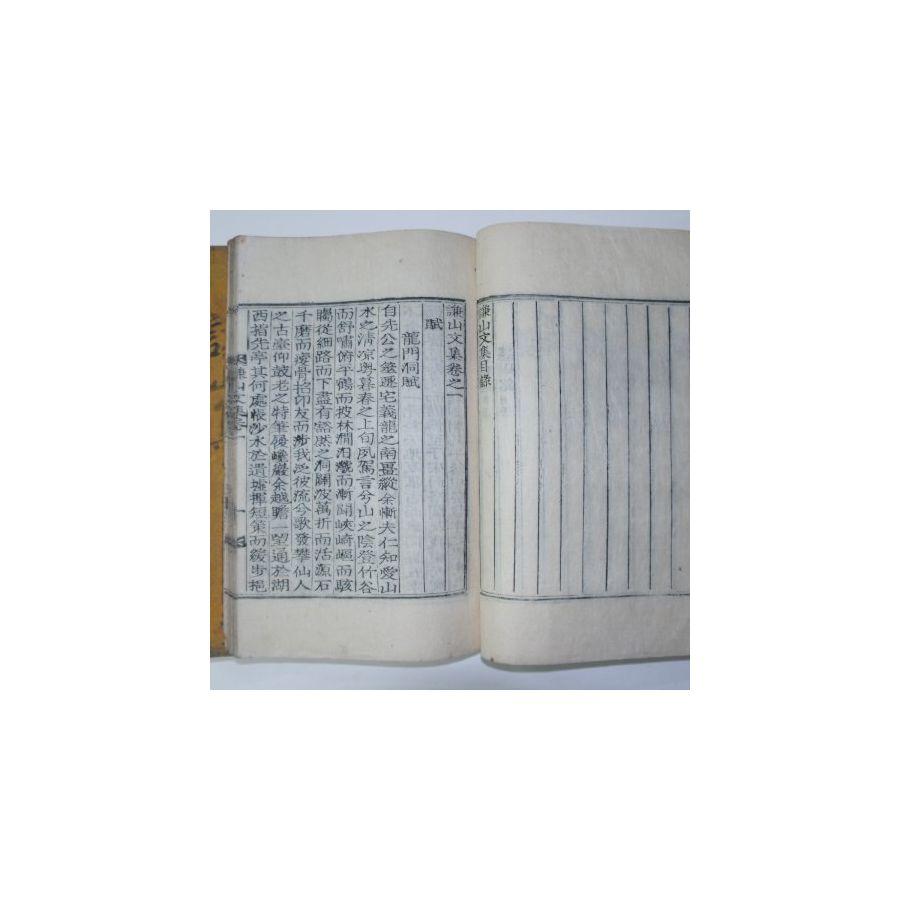 謙山文集目錄
謙山文集卷之一
賦
龍門洞賦
自先公之筮遯宅義龍之南畺縱余慚夫仁知愛山
水之清凉粤暮春之上旬夙駕言兮山之陰登竹谷
而舒嘯俯平鶴而披林澗汨㶁而漸闢峽崎嶇而駭
矚從細路而下盡有豁然之洞闢波萬折而活源石
千磨而瘦骨招卬友而涉我泛彼流兮歌發攀仙人
之古臺仰鼓老之特筆後嶢巖余越瞻一望通於湖
西指先亭其何處悵沙水於遺墟揮短策而緩步挹
謙山文集卷一